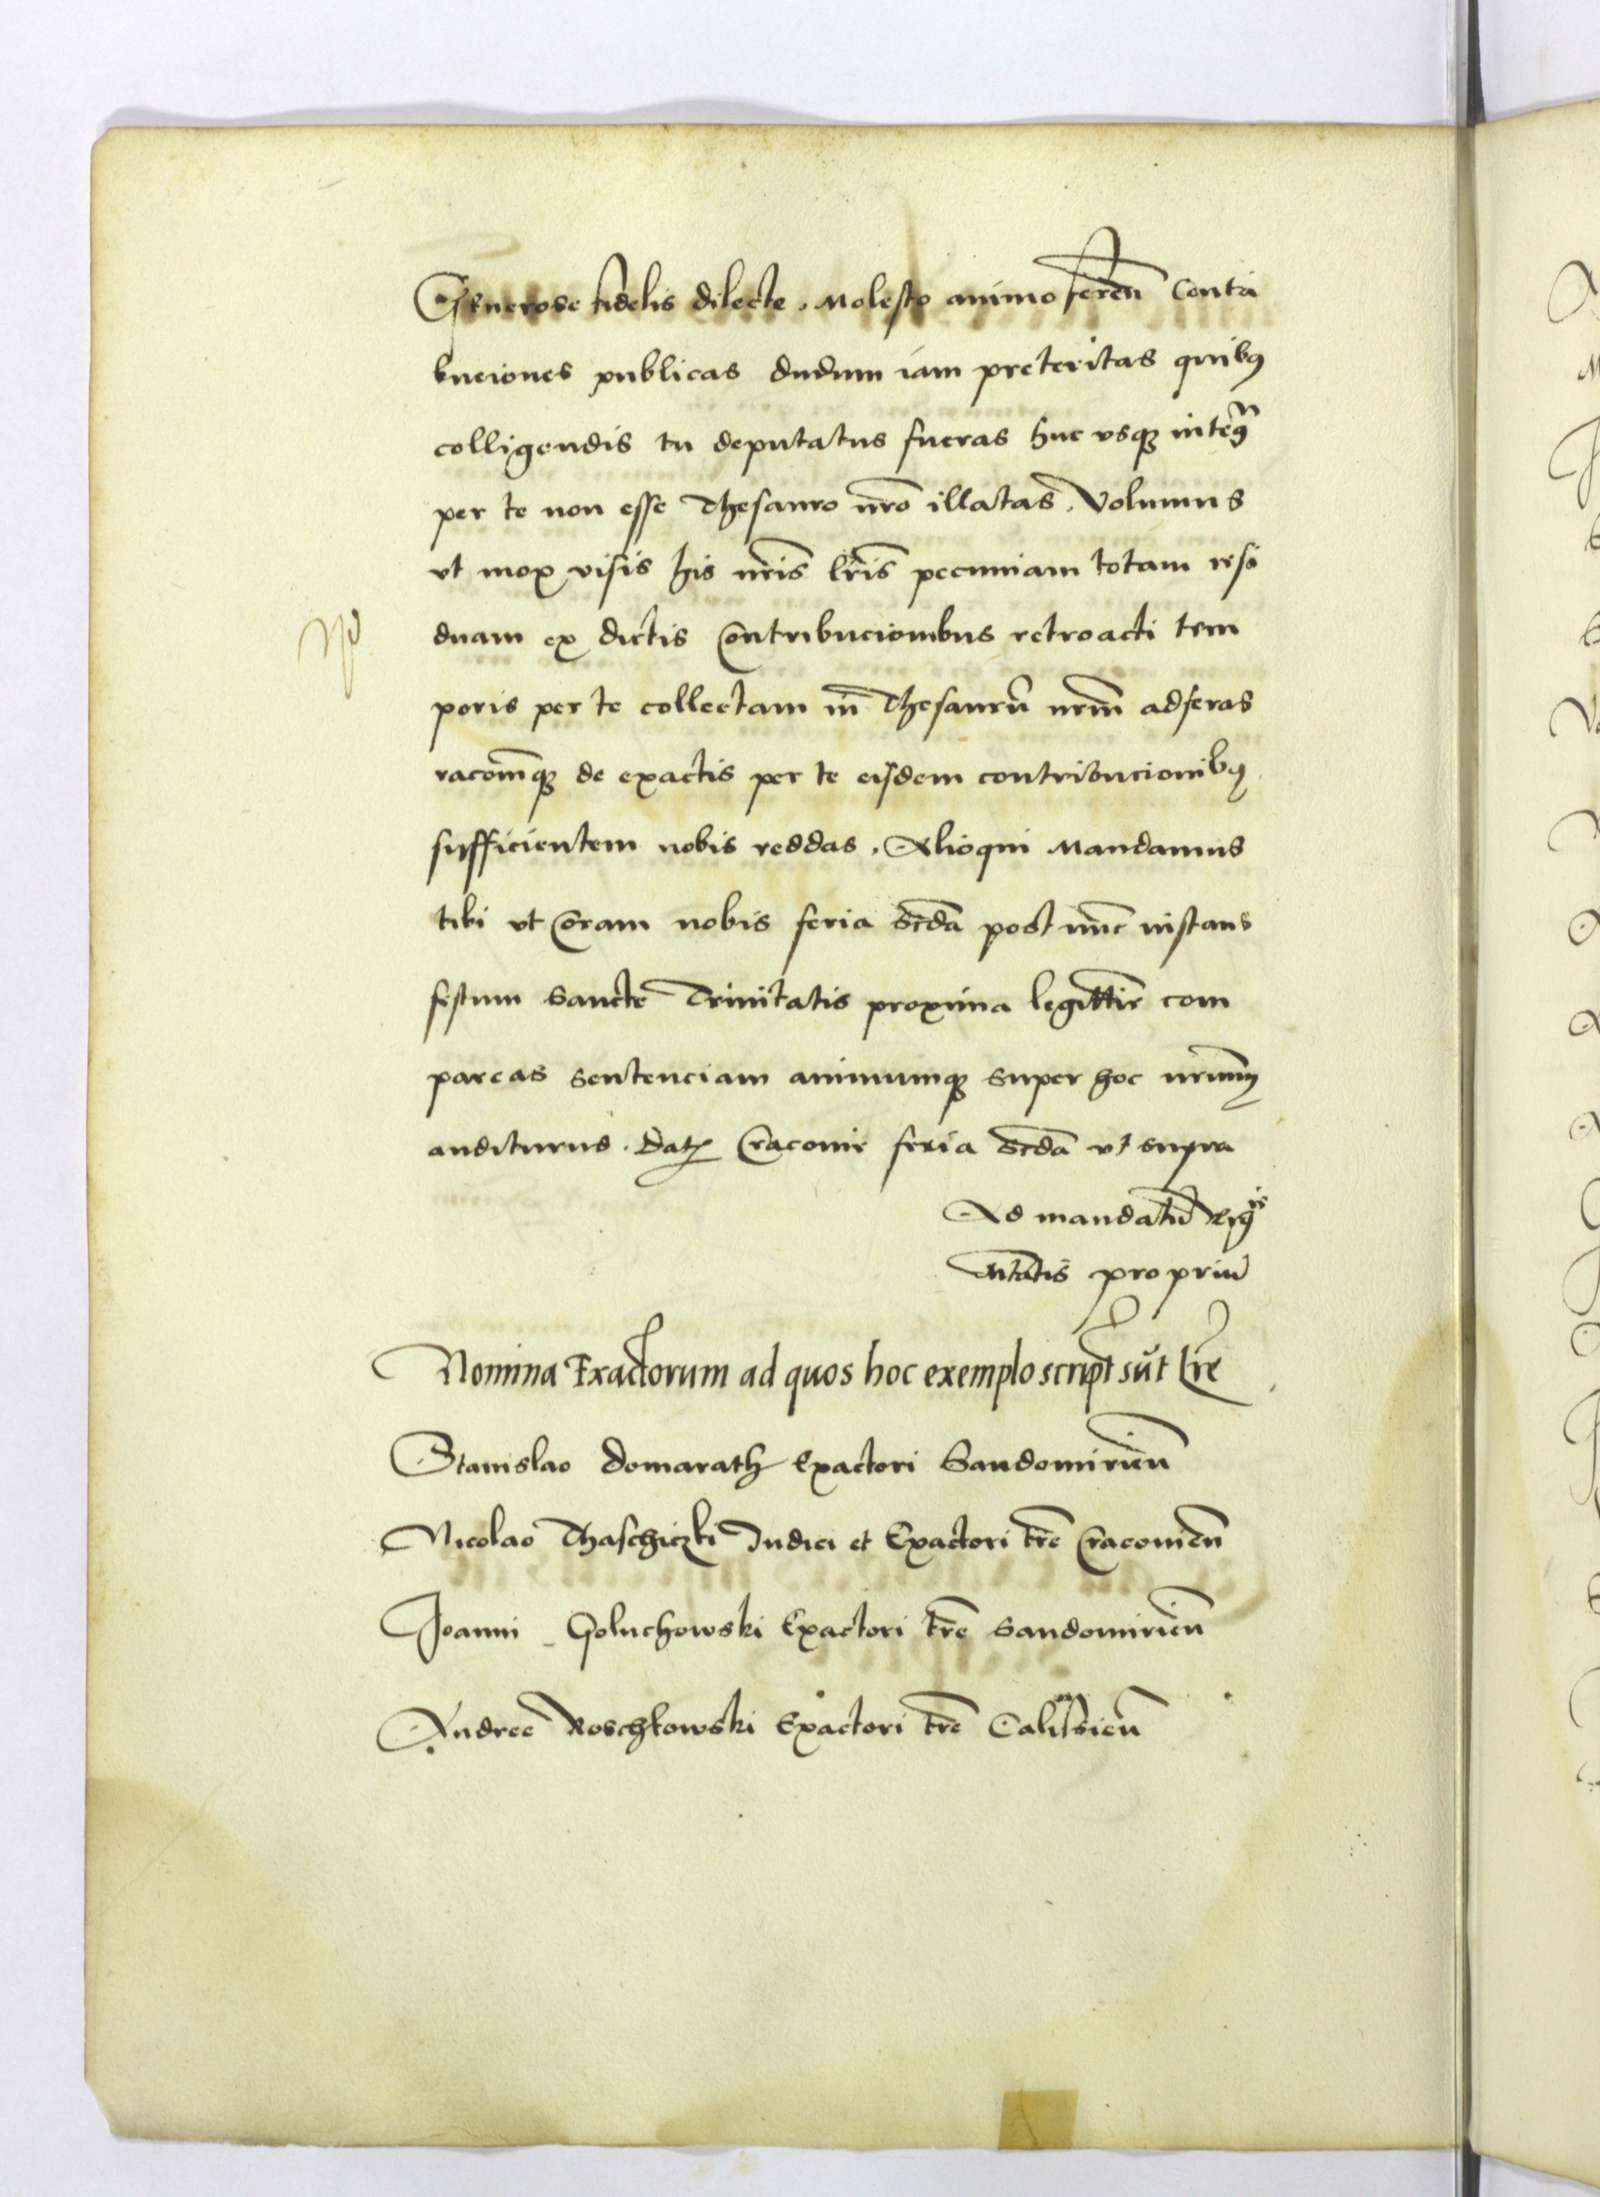 Generose fidelis dilecte. Molesto animo feren̄ Contri
buciones publicas dudum iam preteritas quibꝰ
colligendis tu deputatus fueras huc usqꝫ integᵃ
per te non esse Thesauro nr̄o illatas. Volumus
vt mox visis his nr̄is lr̄is pecuniam totam resi
duam ex dictis Contribucionibus retroacti tem
poris per te collectam in Thesaurū nrm̄ adferas
racōmqꝫ de exactis per te eisdem contribucionibꝰ
sufficientem nobis reddas. Alioqui Mandamus
tibi vt Coram nobis feria scd̄a post nūc instans
festum Sancte Trinitatis proxima legittīe com
pareas sentenciam animumqꝫ super hoc nrūm
auditurus. Datꝫ Cracovie feria scd̄a vt supra
Ad mandatū Regⁱˢ
Mtātis propriū
Nomina Exactorum ad quos hoc exemplo script sūt lr̄e
Stanislao Domarath Exactori Sandomirien̄
Nicolao Thaschiczki Iudici et Exactori tr̄e Cracovien̄
Joanni Goluchowski Exactori tr̄e Sandomirien̄
Andree Roschkowski Exactori tr̄e Calissien̄